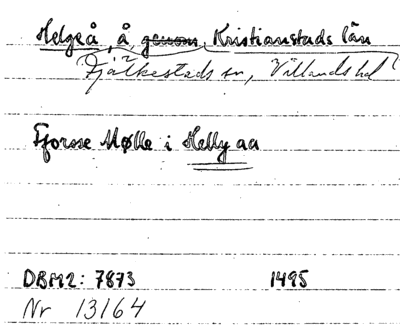 Helgeå, å genom Kristianstads län
Fjälkestads sn, Villands hd
Fforsse Mølle i Helly aa
DBM2: 7873 1495
Nr 13164